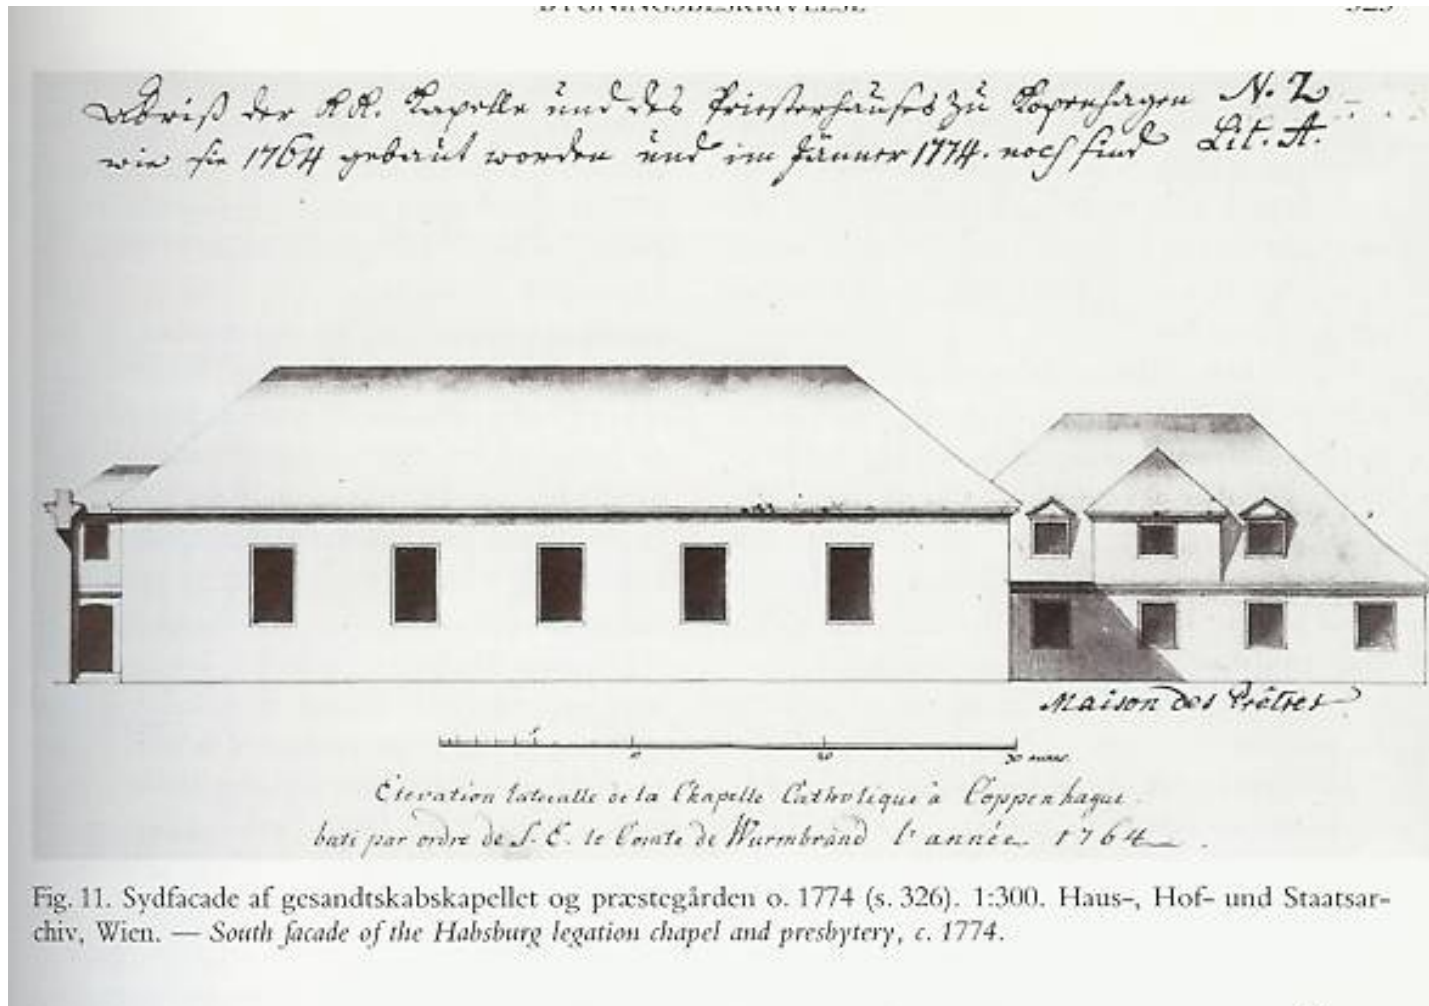 BYGNINGSBESKRIVELSE 323
Abriß der K K. Kapelle und des Priesterhauses zu Kopenhagen N. 2
wie sie 1764 gebaut worden und im Jänner 1774. noch sind Lit. A.
Maison des Prêtres
Elevation lateralle de la Chapelle Catholique a Coppenhague.
bati par ordre de S. E. le Comte de Wurmbrand l'année 1764
Fig. 11. Sydfacade af gesandtskabskapellet og præstegården o. 1774 (s. 326). 1:300. Haus-, Hof- und Staatsar-
chiv, Wien. — South facade of the Habsburg legation chapel and presbytery, c. 1774.